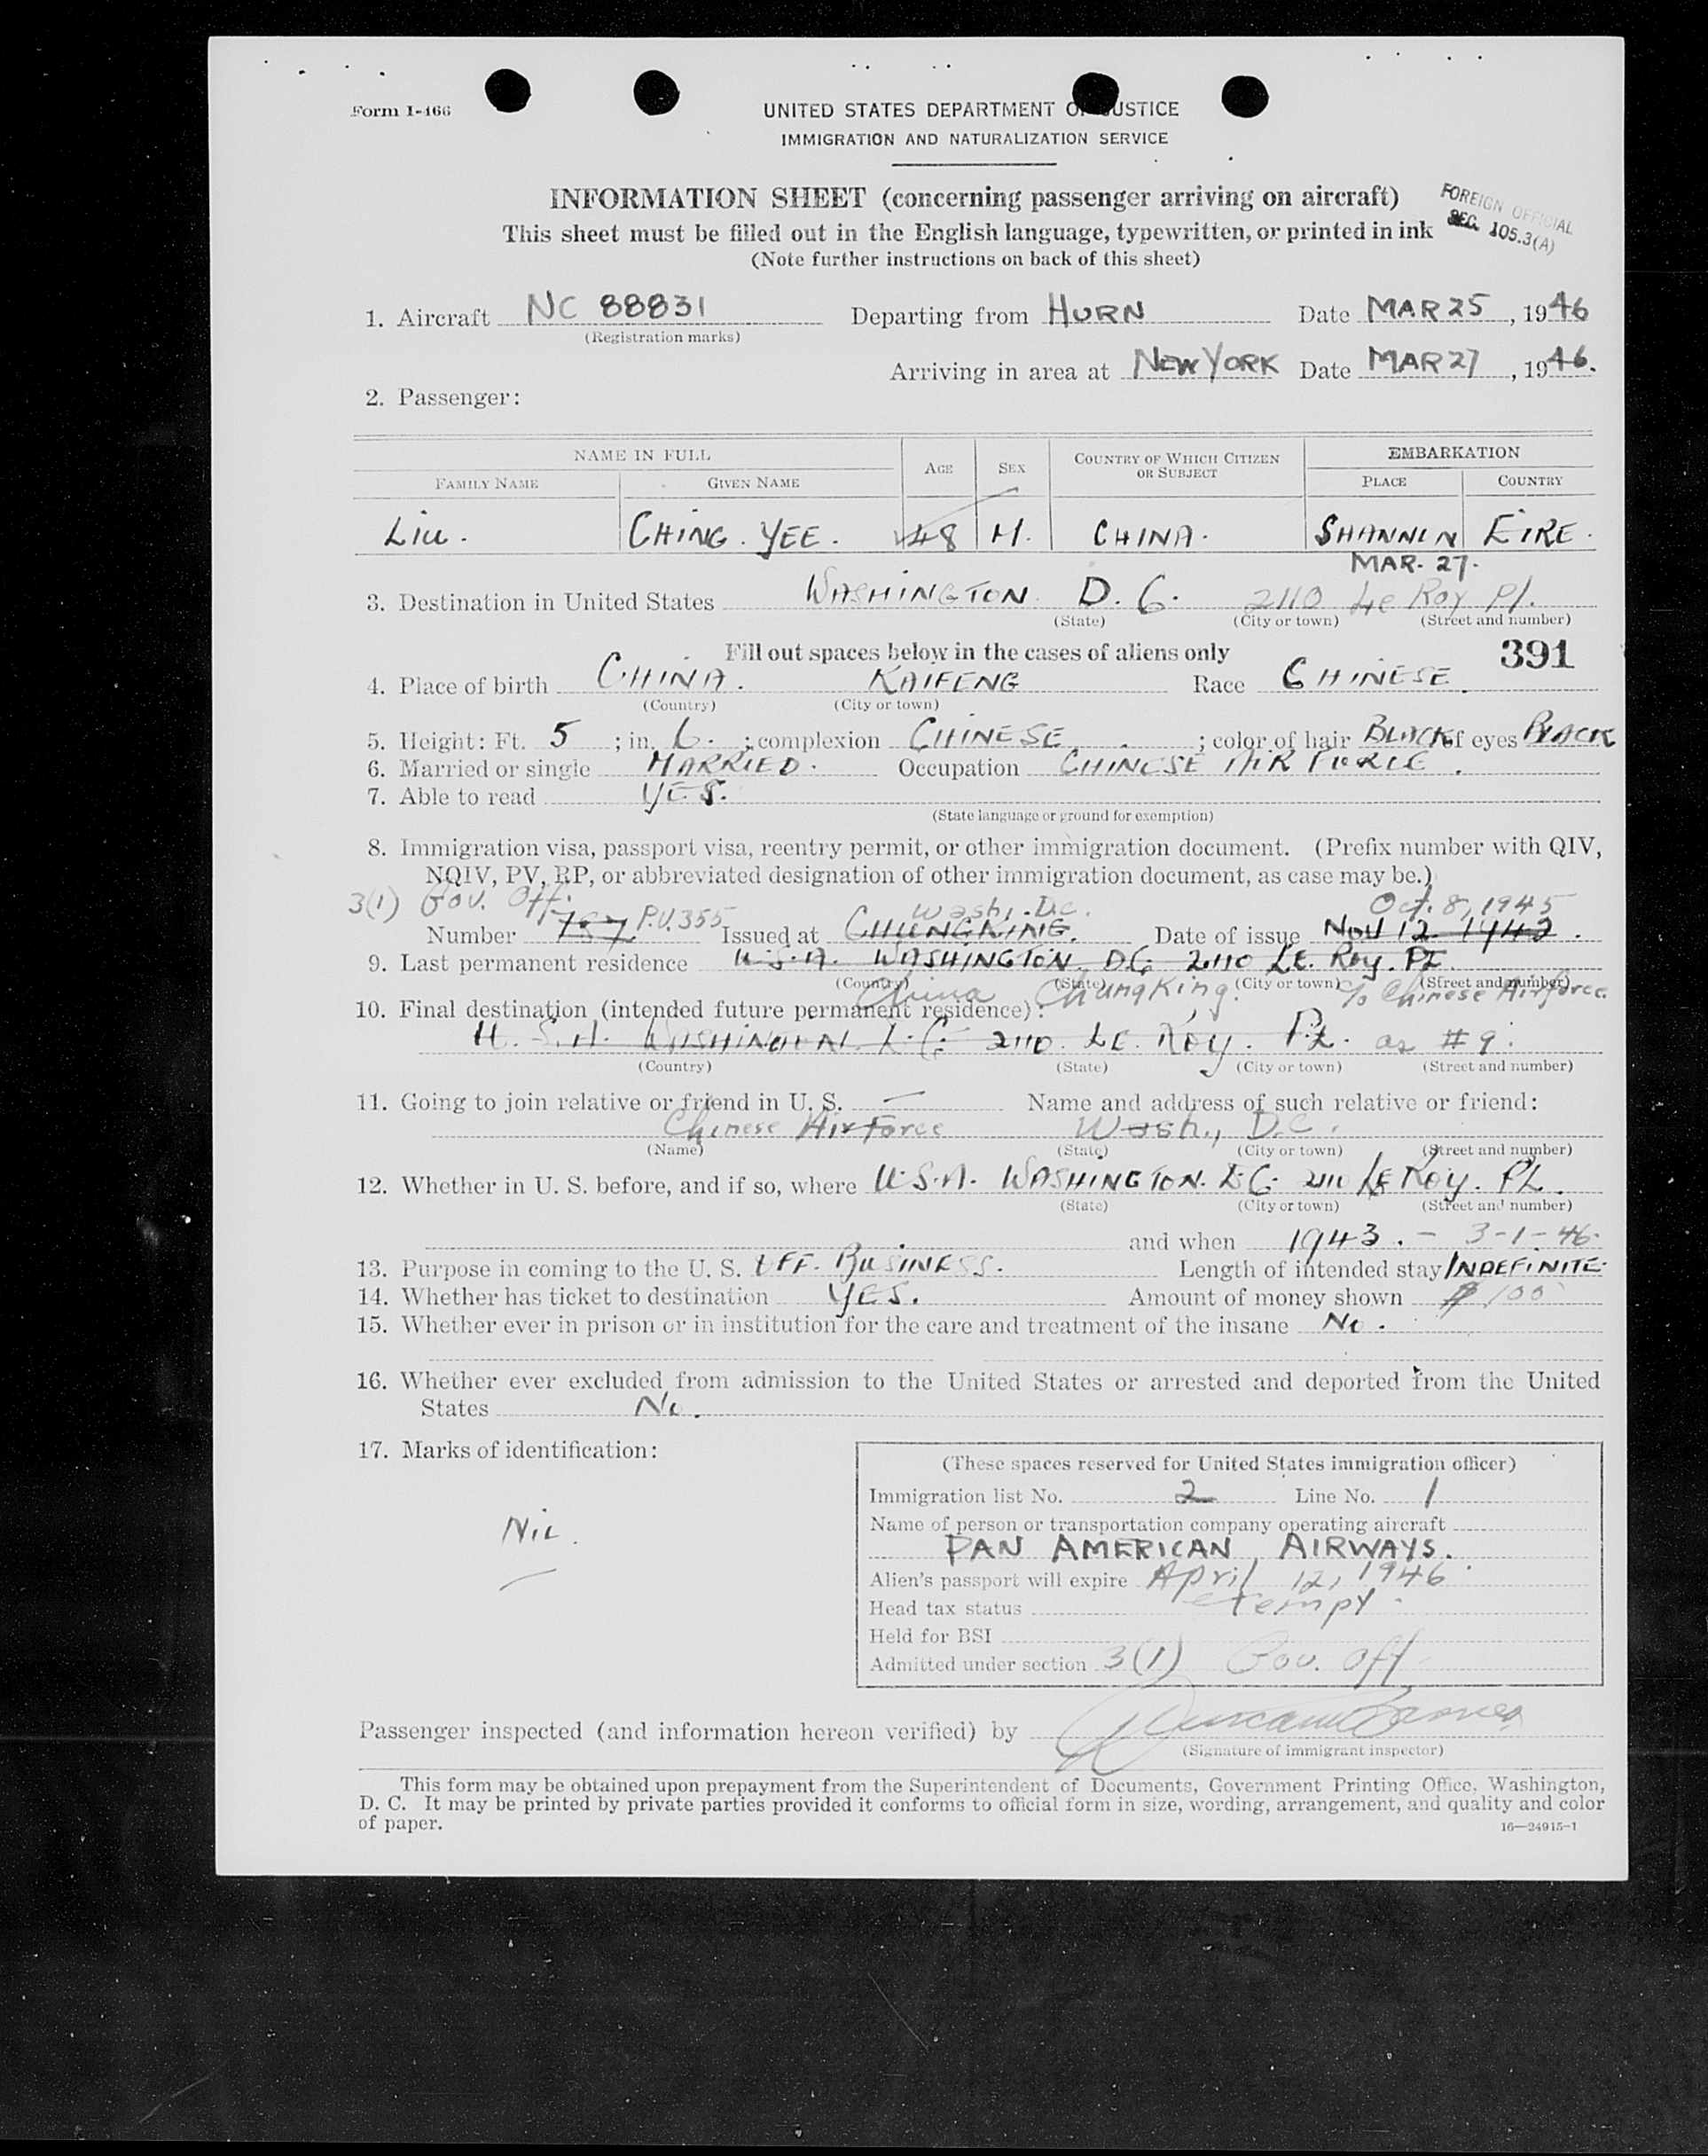 Form I-466
UNITED STATES DEPARTMENT OF JUSTICE
IMMIGRATION AND NATURALIZATION SERVICE
INFORMATION SHEET (concerning passenger arriving on aircraft)
FOREIGN OFFICIAL
SEC. 105.3(A)
This sheet must be filled out in the English language, typewritten, or printed in ink
(Note further instructions on back of this sheet)
1. Aircraft NC 88831 Departing from HURN Date MAR 25, 1946
(Registration marks)
Arriving in area at NEW YORK Date MAR 27, 1946.
2. Passenger:
NAME IN FULL AGE SEX COUNTRY OF WHICH CITIZEN OR SUBJECT EMBARKATION
FAMILY NAME GIVEN NAME PLACE COUNTRY
LIU. CHING. YEE. 48 M. CHINA. SHANNON EIRE.
MAR. 27.
3. Destination in United States WASHINGTON D. C. 2110 Le Roy Pl.
(State) (City or town) (Street and number)
Fill out spaces below in the cases of aliens only 391
4. Place of birth CHINA. KAIFENG Race CHINESE.
(Country) (City or town)
5. Height: Ft. 5 ; in. 6. ; complexion CHINESE ; color of hair BLACK of eyes BLACK
6. Married or single MARRIED. Occupation CHINESE AIR FORCE.
7. Able to read YES.
(State language or ground for exemption)
8. Immigration visa, passport visa, reentry permit, or other immigration document. (Prefix number with QIV,
NQIV, PV, RP, or abbreviated designation of other immigration document, as case may be.)
3(1) Gov. Off. Wash., D.C. Oct. 8, 1945
Number 787 P.V. 355 Issued at CHUNGKING. Date of issue NOV 12 1943.
9. Last permanent residence U.S.A. WASHINGTON, D.C. 2110 LE. ROY. PL.
(Country) (State) (City or town) (Street and number)
China Chungking. c/o Chinese Airforce
10. Final destination (intended future permanent residence):
U.S.A. WASHINGTON D.C. 2110. LE. ROY. PL. as #9.
(Country) (State) (City or town) (Street and number)
11. Going to join relative or friend in U. S. — Name and address of such relative or friend:
Chinese Airforce Wash., D.C.
(Name) (State) (City or town) (Street and number)
12. Whether in U. S. before, and if so, where U.S.A. WASHINGTON. D.C. 2110 LE ROY. PL.
(State) (City or town) (Street and number)
and when 1943. - 3-1-46.
13. Purpose in coming to the U. S. OFF. BUSINESS. Length of intended stay INDEFINITE.
14. Whether has ticket to destination YES. Amount of money shown $100
15. Whether ever in prison or in institution for the care and treatment of the insane No.
16. Whether ever excluded from admission to the United States or arrested and deported from the United
States No.
17. Marks of identification:
NIL.
(These spaces reserved for United States immigration officer)
Immigration list No. 2 Line No. 1
Name of person or transportation company operating aircraft
PAN AMERICAN AIRWAYS.
Alien's passport will expire April 12, 1946
Head tax status exempt.
Held for BSI
Admitted under section 3(1) Gov. Off.
Passenger inspected (and information hereon verified) by
(Signature of immigrant inspector)
This form may be obtained upon prepayment from the Superintendent of Documents, Government Printing Office, Washington,
D. C. It may be printed by private parties provided it conforms to official form in size, wording, arrangement, and quality and color
of paper.
16—24915-1